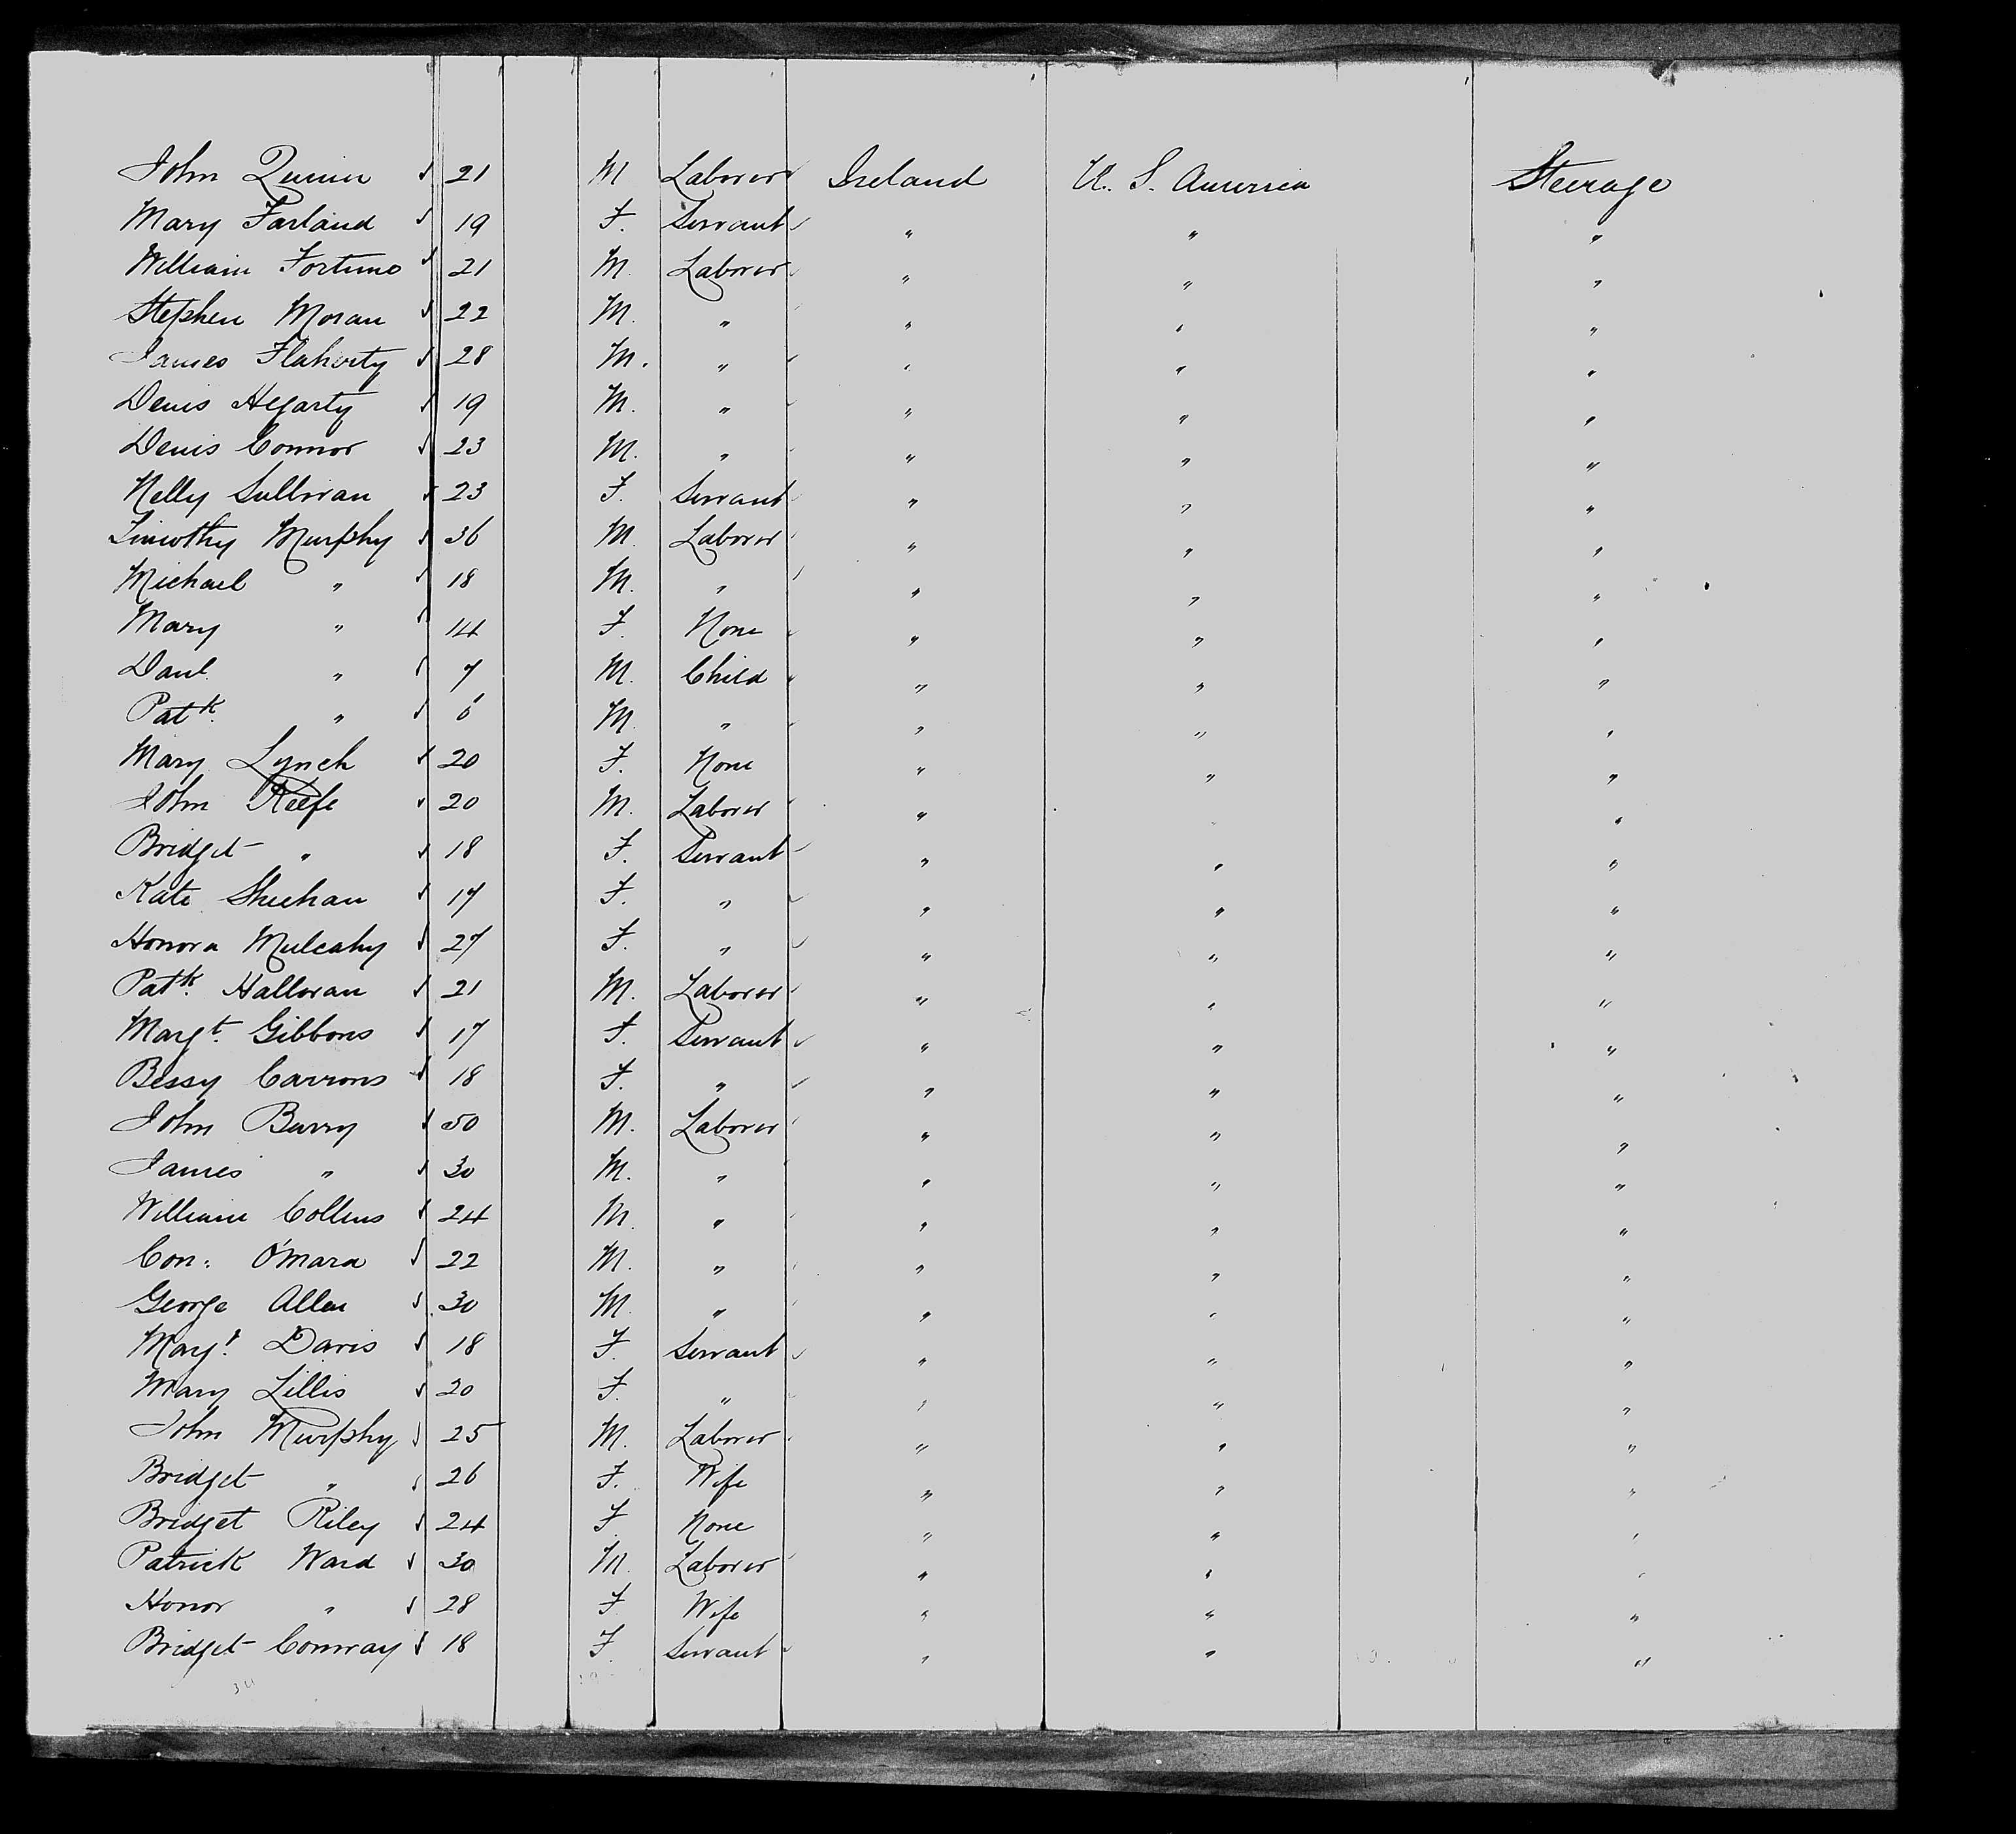 John Quinn 21 M Laborer Ireland U. S. America Steerage
Mary Farland 19 F. Servant " " "
William Fortune 21 M. Laborer " " "
Stephen Moran 22 M. " " " "
James Flaherty 28 M. " " " "
Denis Hegarty 19 M. " " " "
Denis Connor 23 M. " " " "
Nelly Sullivan 23 F. Servant " " "
Timothy Murphy 36 M. Laborer " " "
Michael " 18 M. " " " "
Mary " 14 F. None " " "
Danl. " 7 M. Child " " "
Patk. " 6 M. " " " "
Mary Lynch 20 F. None " " "
John Keefe 20 M. Laborer " "
Bridget " 18 F. Servant " " "
Kate Sheehan 17 F. " " " "
Honora Mulcahy 27 F. " " " "
Patk. Halloran 21 M. Laborer " " "
Margt. Gibbons 17 F. Servant " " "
Bessy Carrons 18 F. " " " "
John Barry 50 M. Laborer " " "
James " 30 M. " " " "
William Collins 24 M. " " " "
Con: O'Mara 22 M. " " " "
George Allen 30 M. " " " "
Margt. Davis 18 F. Servant " " "
Mary Lillis 20 F. " " " "
John Murphy 25 M. Laborer " " "
Bridget " 26 F. Wife " " "
Bridget Riley 24 F. None " " "
Patrick Ward 30 M. Laborer " " "
Honor " 28 F. Wife " " "
Bridget Conway 18 F. Servant " " "